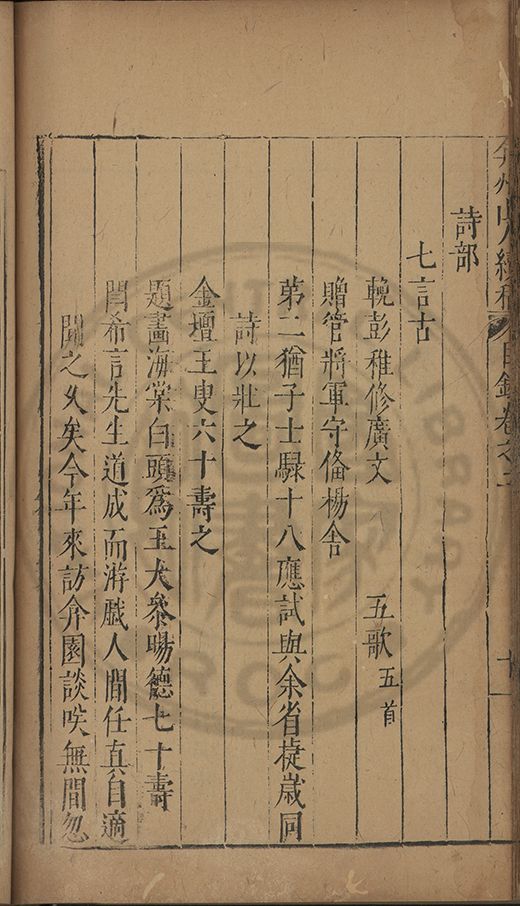 弇州山人續稿 目錄卷之二
詩部
七言古
輓彭稚修廣文 五歌五首
贈管將軍守備楊舍
第二猶子士騄十八應試與余省㨗歲同
詩以壯之
金壇王叟六十壽之
題畫海棠白頭為王大參暘德七十壽
閆希言先生道成而游戲人間任真自適
聞之久矣今年來訪弇園談咲無間忽